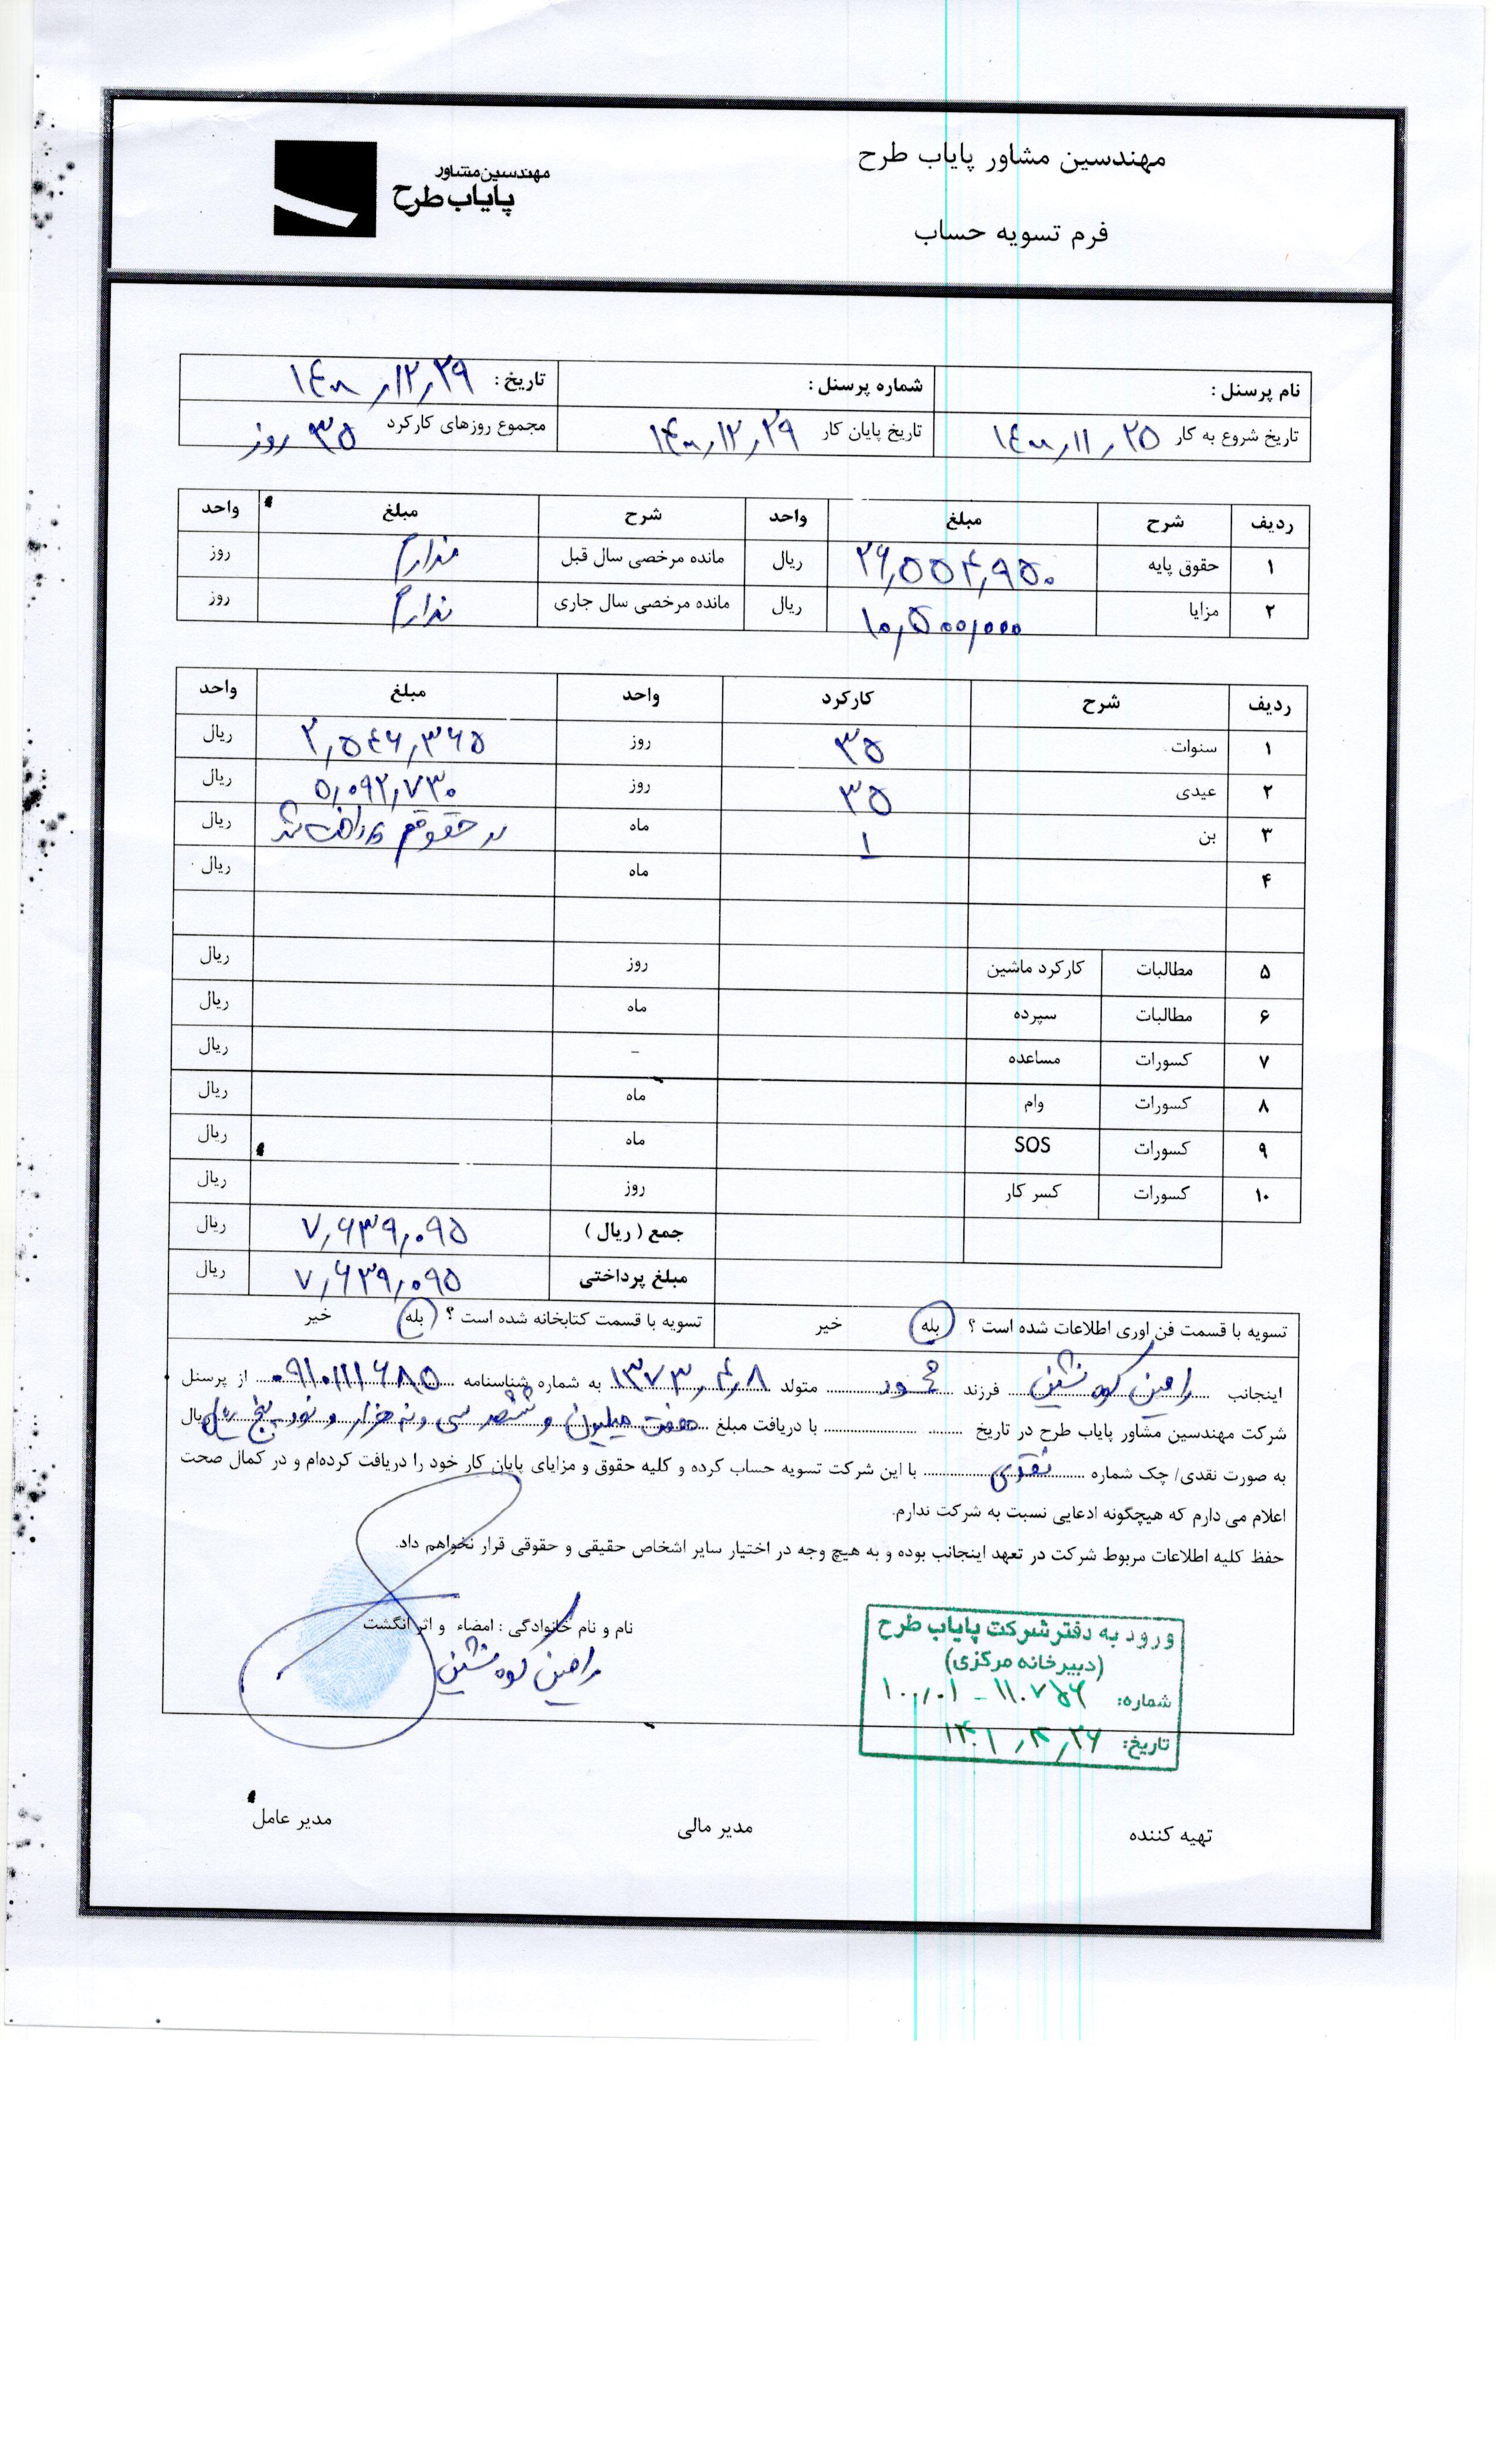 مهندسین مشاور پایاب طرح
مهندسین مشاور
پایاب طرح
فرم تسویه حساب
نام پرسنل : شماره پرسنل : تاریخ : ۱۴۰۰,۱۲,۲۹
تاریخ شروع به کار ۱۴۰۰,۱۱,۲۵ تاریخ پایان کار ۱۴۰۰,۱۲,۲۹ مجموع روزهای کارکرد ۳۵ روز
ردیف شرح مبلغ واحد شرح مبلغ واحد
۱ حقوق پایه ۲۶,۵۵۴,۹۵۰ ریال مانده مرخصی سال قبل ندارم روز
۲ مزایا ۱۰,۵۰۰,۰۰۰ ریال مانده مرخصی سال جاری ندارم روز
ردیف شرح کارکرد واحد مبلغ واحد
۱ سنوات ۳۵ روز ۲,۵۴۶,۳۶۵ ریال
۲ عیدی ۳۵ روز ۵,۰۹۲,۷۳۰ ریال
۳ بن ۱ ماه در حقوقم پرداخت شد ریال
۴ ماه ریال
۵ مطالبات کارکرد ماشین روز ریال
۶ مطالبات سپرده ماه ریال
۷ کسورات مساعده – ریال
۸ کسورات وام ماه ریال
۹ کسورات SOS ماه ریال
۱۰ کسورات کسر کار روز ریال
جمع ( ریال ) ۷,۶۳۹,۰۹۵ ریال
مبلغ پرداختی ۷,۶۳۹,۰۹۵ ریال
تسویه با قسمت فن اوری اطلاعات شده است ؟ بله خیر تسویه با قسمت کتابخانه شده است ؟ بله خیر
اینجانب رامین کوه نشین فرزند محمود متولد ۱۳۷۳,۴,۸ به شماره شناسنامه ۰۹۱۰۱۱۱۶۸۵ از پرسنل
شرکت مهندسین مشاور پایاب طرح در تاریخ ........ با دریافت مبلغ هفت میلیون و ششصد سی و نه هزار و نود پنج ریال ریال
به صورت نقدی/ چک شماره نقدی با این شرکت تسویه حساب کرده و کلیه حقوق و مزایای پایان کار خود را دریافت کرده‌ام و در کمال صحت
اعلام می دارم که هیچگونه ادعایی نسبت به شرکت ندارم.
حفظ کلیه اطلاعات مربوط شرکت در تعهد اینجانب بوده و به هیچ وجه در اختیار سایر اشخاص حقیقی و حقوقی قرار نخواهم داد.
نام و نام خانوادگی : امضاء و اثر انگشت
رامین کوه نشین
ورود به دفتر شرکت پایاب طرح
(دبیرخانه مرکزی)
شماره:
تاریخ: ۱۴۰۱,۴,۲۶
تهیه کننده مدیر مالی مدیر عامل